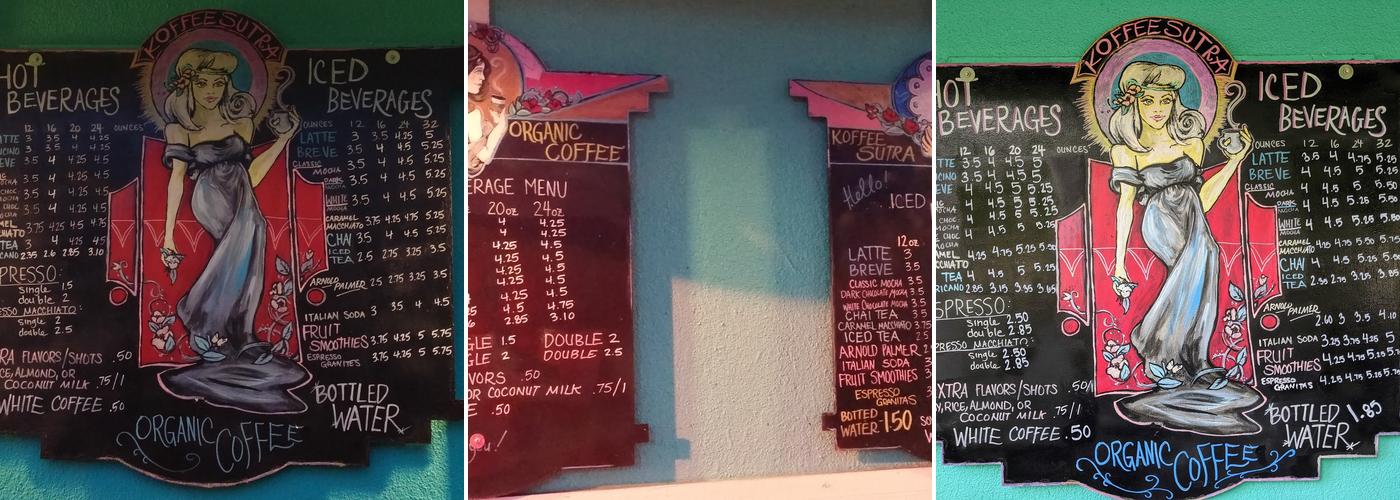 KOFFEE SUTRA
HOT
BEVERAGES
12 16 20 24 OUNCES
LATTE 3 3.5 4 4.25
CINO 3 3.5 4 4.25
EVE 3.5 4 4.25 4.5
MOCHA 3.5 4 4.25 4.5
CHOC. 3.5 4 4.25 4.5
MOCHA
CHOC 3.5 4 4.25 4.5
MOCHA
MEL 3.75 4.25 4.5 4.75
CCHIATO
TEA 3 4 4.25 4.5
ICANO 2.35 2.6 2.85 3.10
PRESSO:
single 1.5
double 2
SSO MACCHIATO:
single 2
double 2.5
RA FLAVORS/SHOTS .50
CE, ALMOND, OR
COCONUT MILK .75/1
WHITE COFFEE .50
ICED
BEVERAGES
OUNCES 12 16 24 32
LATTE 3 3.5 4.25 5
BREVE 3.5 4 4.5 5.25
CLASSIC MOCHA 3.5 4 4.5 5.25
DARK MOCHA 3.5 4 4.5 5.25
WHITE MOCHA 3.5 4 4.5 5.25
CARAMEL MACCHIATO 3.75 4.25 4.75 5.25
CHAI 3.5 4 4.5 5.25
ICED TEA 2.5 2.75 3.25 3.5
ARNOLD PALMER 2.5 2.75 3.25 3.5
ITALIAN SODA 3 3.5 4 4.5
FRUIT
SMOOTHIES 3.75 4.25 5 5.75
ESPRESSO
GRANITES 3.75 4.25 5 5.75
BOTTLED
WATER
ORGANIC COFFEE
ORGANIC
COFFEE
ERAGE MENU
20oz 24oz
4 4.25
4 4.25
4.25 4.5
4.25 4.5
4.25 4.5
4.25 4.5
4.5 4.75
2.85 3.10
GLE 1.5 DOUBLE 2
GLE 2 DOUBLE 2.5
VORS .50
OR COCONUT MILK .75/1
E .50
you!
KOFFEE
SUTRA
Hello!
ICED
12oz
LATTE 3
BREVE 3.5
CLASSIC MOCHA 3.5
DARK CHOCOLATE MOCHA 3.5
WHITE CHOCOLATE MOCHA 3.5
CHAI TEA 3.5
CARAMEL MACCHIATO 3.75
ICED TEA 2.5
ARNOLD PALMER 2.5
ITALIAN SODA 3
FRUIT SMOOTHIES
ESPRESSO
GRANITAS
BOTTED
WATER 1.50
KOFFEE SUTRA
HOT
BEVERAGES
12 16 20 24 OUNCES
TTE 3.5 4 4.5 5
CINO 3.5 4 4.5 5
EVE 4 4.5 5 5.25
4 4.5 5 5.25
4 4.5 5 5.25
4 4.5 5 5.25
TEA
RICANO
SPRESSO:
single 2.50
double 2.85
PRESSO MACCHIATO:
single 2.50
double 2.85
EXTRA FLAVORS/SHOTS .50
Y, RICE, ALMOND, OR
COCONUT MILK .75/1
WHITE COFFEE .50
ICED
BEVERAGES
OUNCES 12 16 24 32
LATTE 3.5 4 4.75 5.25
BREVE 4 4.5 5 5.5
CLASSIC MOCHA 4 4.5 5 5.5
DARK MOCHA 4 4.5 5.25 5.50
WHITE MOCHA 4 4.5 5.25 5.50
CARAMEL MACCHIATO 4.25 4.75 5.25 5.50
CHAI 4 4.5 5.25
ICED TEA
ARNOLD PALMER 2.60 3 3.5
ITALIAN SODA 3.25 3.75 4.25 5
FRUIT
SMOOTHIES 4.25 4.75 5.25
ESPRESSO
GRANITAS 4.25 4.75 5.25
BOTTLED 1.85
WATER
ORGANIC COFFEE